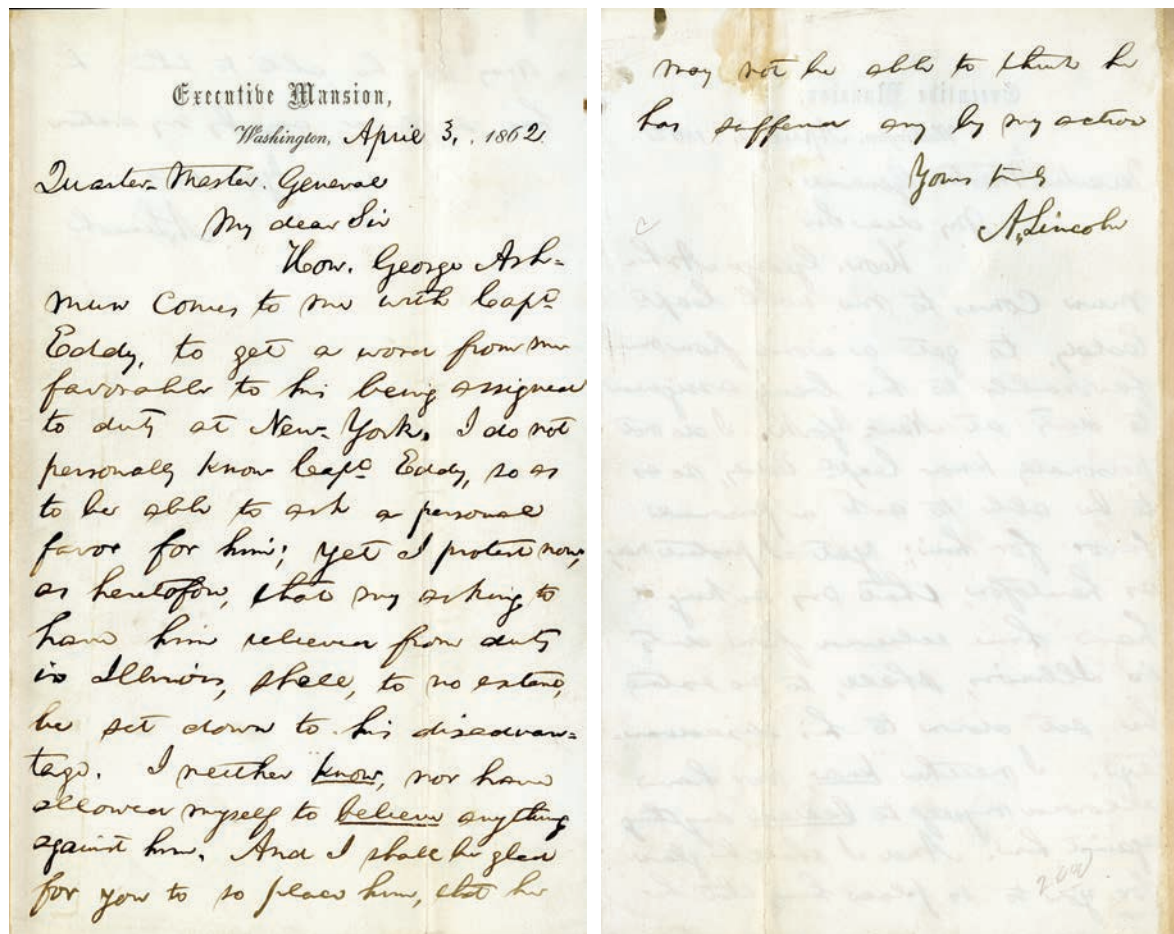 Executive Mansion,
Washington, April 3, 1862.
Quarter-Master. General
My dear Sir
Hon. George Ash=
mun comes to me with Capt
Eddy, to get a word from me
favorable to his being assigned
to duty at New-York. I do not
personally know Capt Eddy, so as
to be able to ask a personal
favor for him; yet I protest now,
as heretofore, that my asking to
have him relieved from duty
in Illinois, shall, to no extent,
be set down to his disadvan=
tage. I neither know, nor have
allowed myself to believe anything
against him. And I shall be glad
for you to so place him, that he
may not be able to think he
has suffered any by my action
Yours truly
A. Lincoln